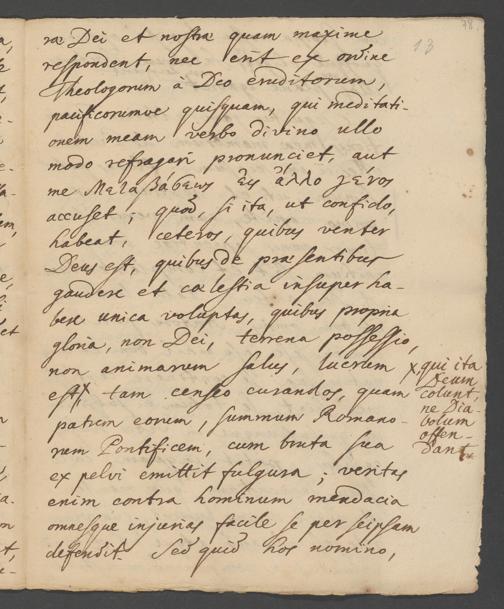 78
13
ræ Dei et nostræ quam maxime
respondent, nec erit ex ordine
Theologorum à Deo eruditorum,
pacificorumve quisquam, qui meditati-
onem meam verbo divino ullo
modo refragari pronunciet, aut
me Μεταβάσεως εἰς ἄλλο γένος
accuset; quod, si ita, ut confido,
habeat, ceteros, quibus venter
Deus est, quibus de præsentibus
gaudere et cœlestia insuper ha-
bere unica voluptas, quibus propria
gloria, non Dei, terrena possessio,
non animarum salus, lucrum
est x tam censeo curandos, quam
patrem eorum, summum Romano-
rum Pontificem, cum bruta sua
ex pelvi emittit fulgura; veritas
enim contra hominum mendacia
omnesque injurias facile se per seipsam
defendit. Sed quid hos nomino,
x, qui ita
Deum
colunt,
ne Dia-
bolum
offen-
dant